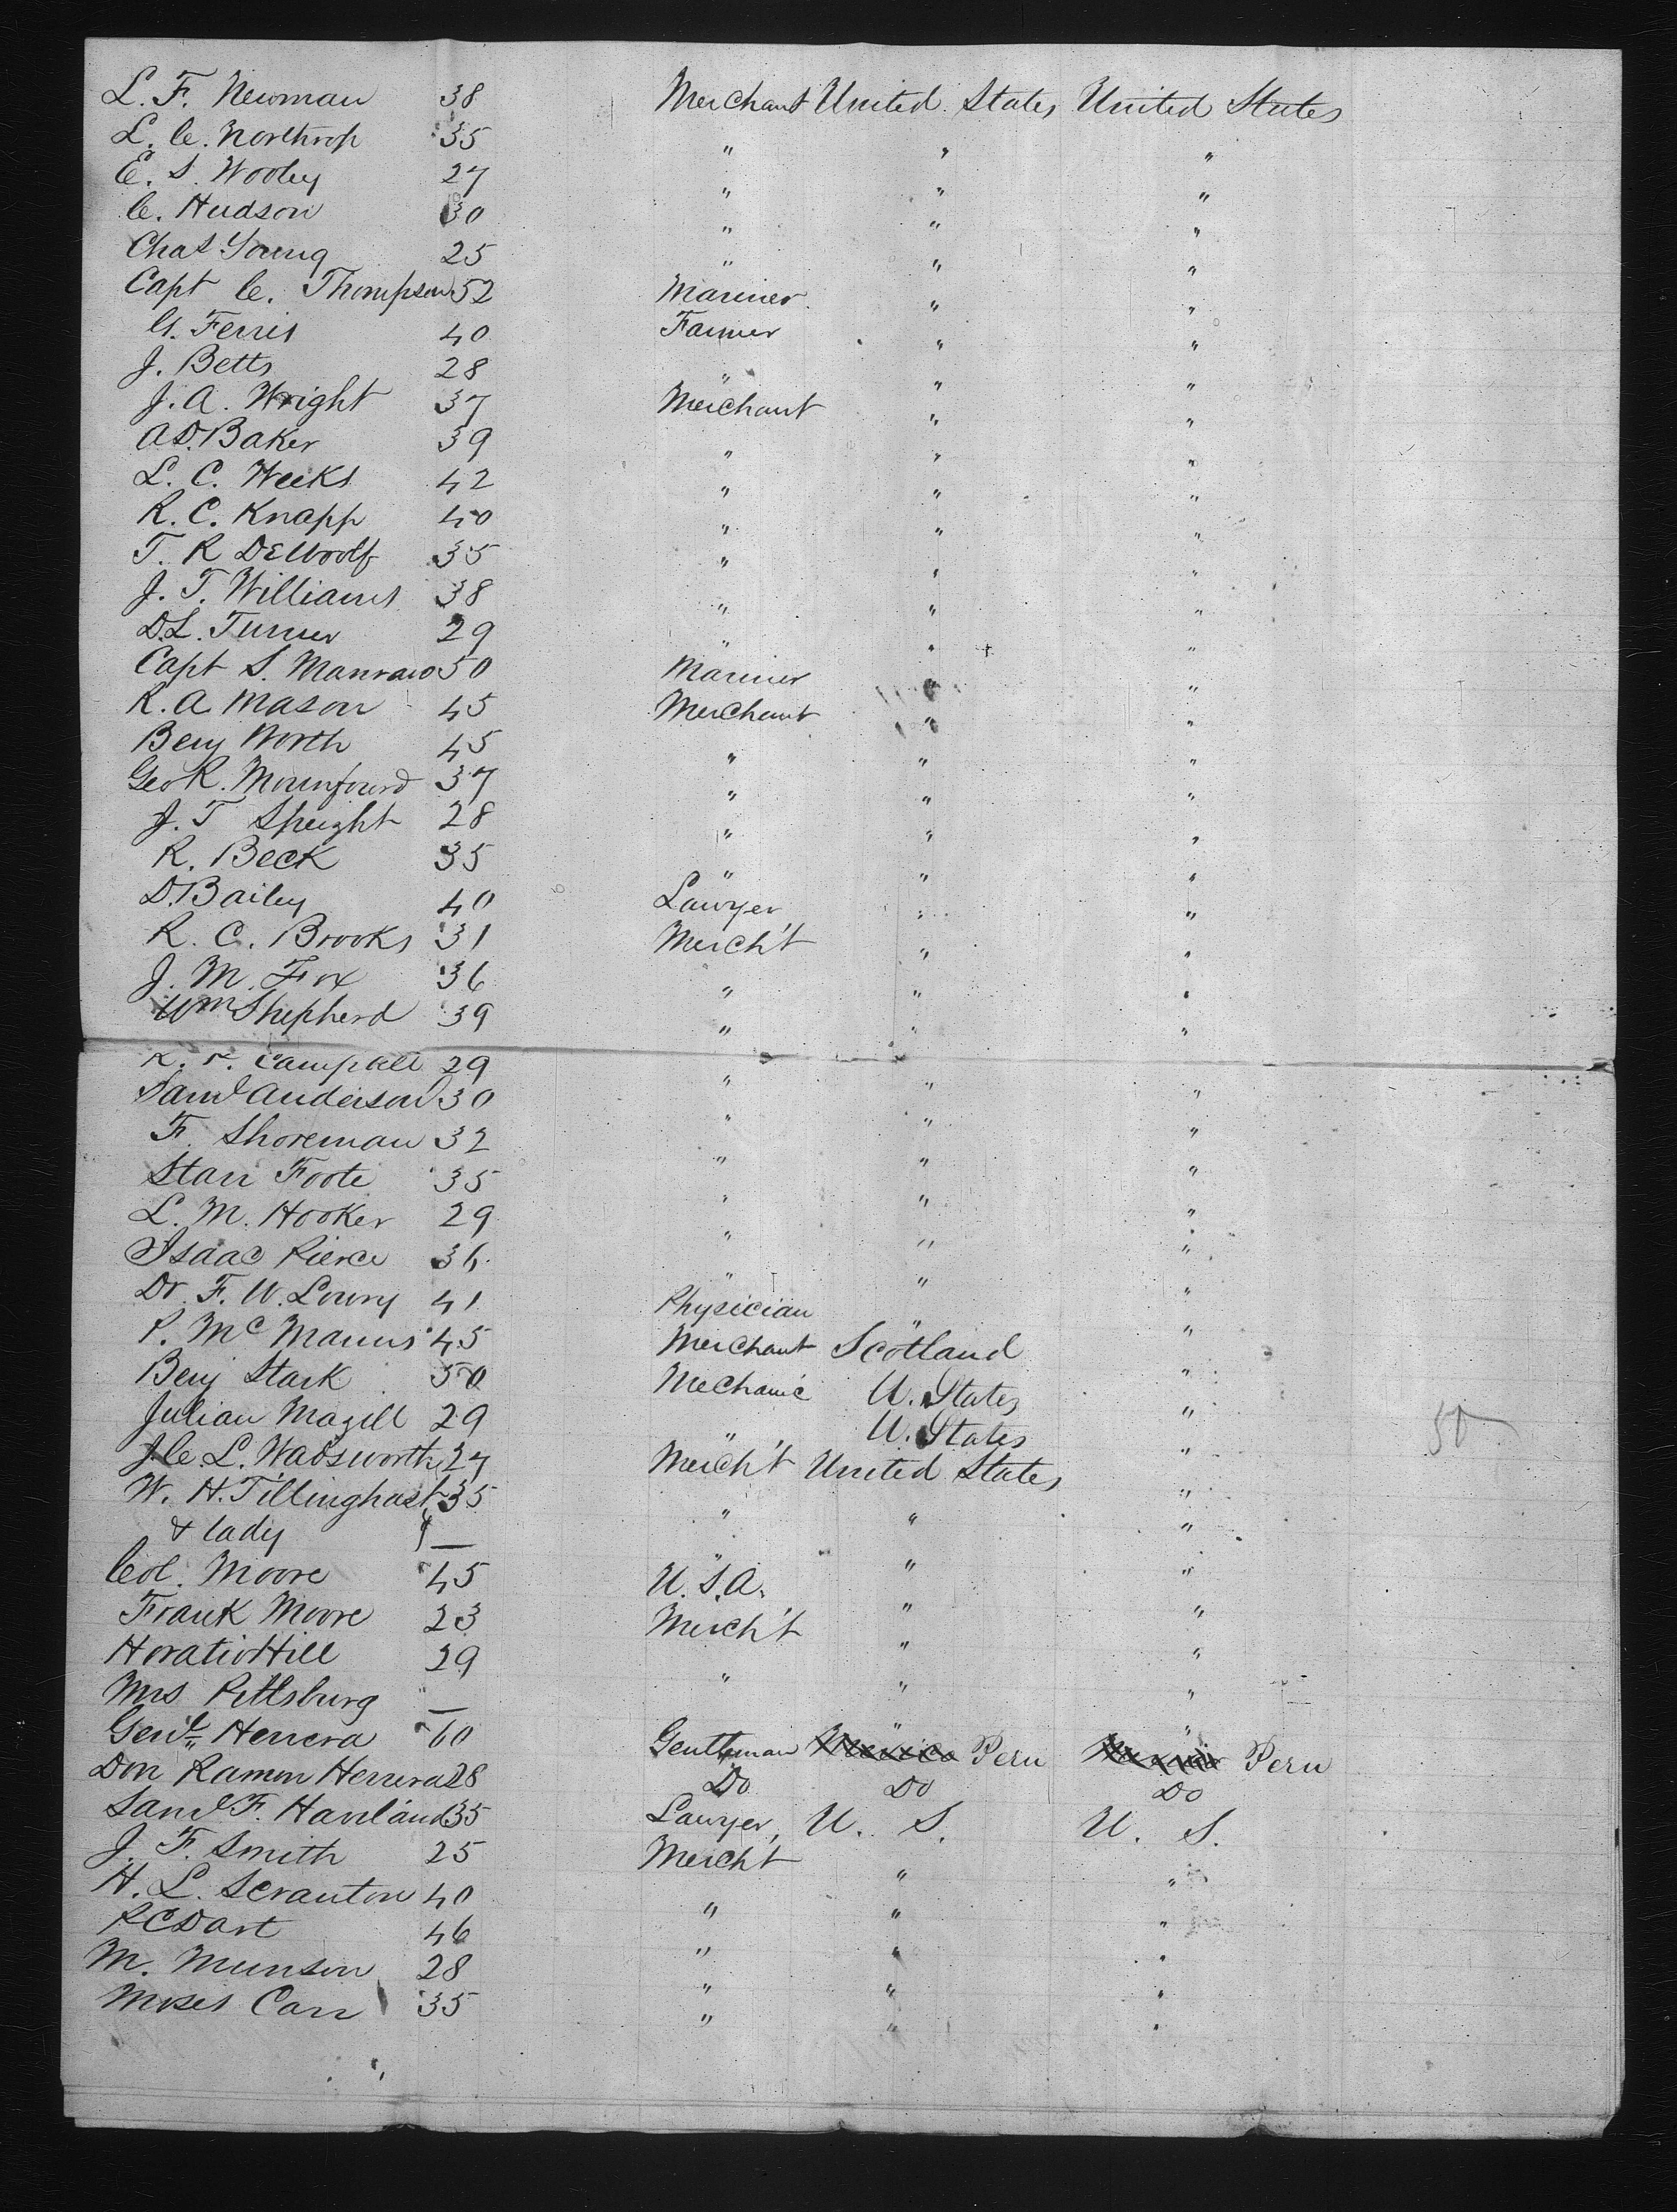 L. F. Newman 38 Merchant United States United States
L. C. Northrop 35 " " "
E. S. Wooley 27 " " "
C. Hudson 30 " " "
Chas Young 25 " " "
Capt C. Thompson 52 Mariner " "
G. Ferris 40 Farmer " "
J. Betts 28 " " "
J. A. Wright 37 Merchant " "
A D. Baker 39 " " "
L. C. Weeks 42 " " "
R. C. Knapp 40 " " "
T. R DeWoolf 35 " " "
J. T. Williams 38 " " "
D. L. Turner 29 " " "
Capt S. Manraw 50 Mariner " "
R. A Mason 45 Merchant " "
Benj Worth 45 " " "
Geo R. 37 " " "
J. T Speight 28 " " "
R. Beck 35 " " "
D. Bailey 40 Lawyer " "
R. C. Brooks 31 Merch't " "
J. M. Fox 36 " " "
Wm Shepherd 39 " " "
Campbell 29 " " "
Saml Anderson 30 " " "
F. Shoreman 32 " " "
Starr Foote 35 " " "
L. M. Hooker 29 " " "
Isaac Pierce 36 " " "
Dr. F. W. Lowry 41 Physician " "
P. Mc Manus 45 Merchant Scotland "
Benj Stark 50 Mechanic U. States "
Julian Magill 29 " U. States "
J. C. L. Wadsworth 27 Merch't United States "
W. H. Tillinghast 35 " " "
& lady — " " "
Col. Moore 45 U. S. A. " "
Frank Moore 23 Merch't " "
Horatio Hill 29 " " "
Mrs Pittsburg — " "
Genl Herrera 60 Gentleman Mexico Peru Peru
Don Ramon Herrera 28 Do Do Do
Saml F. Haviland 35 Lawyer, U. S. U. S.
J. F. Smith 25 Mercht " "
H. L. Scranton 40 " " "
R C Dart 46 " " "
M. Munson 28 " " "
Moses Carr 35 " " "
50